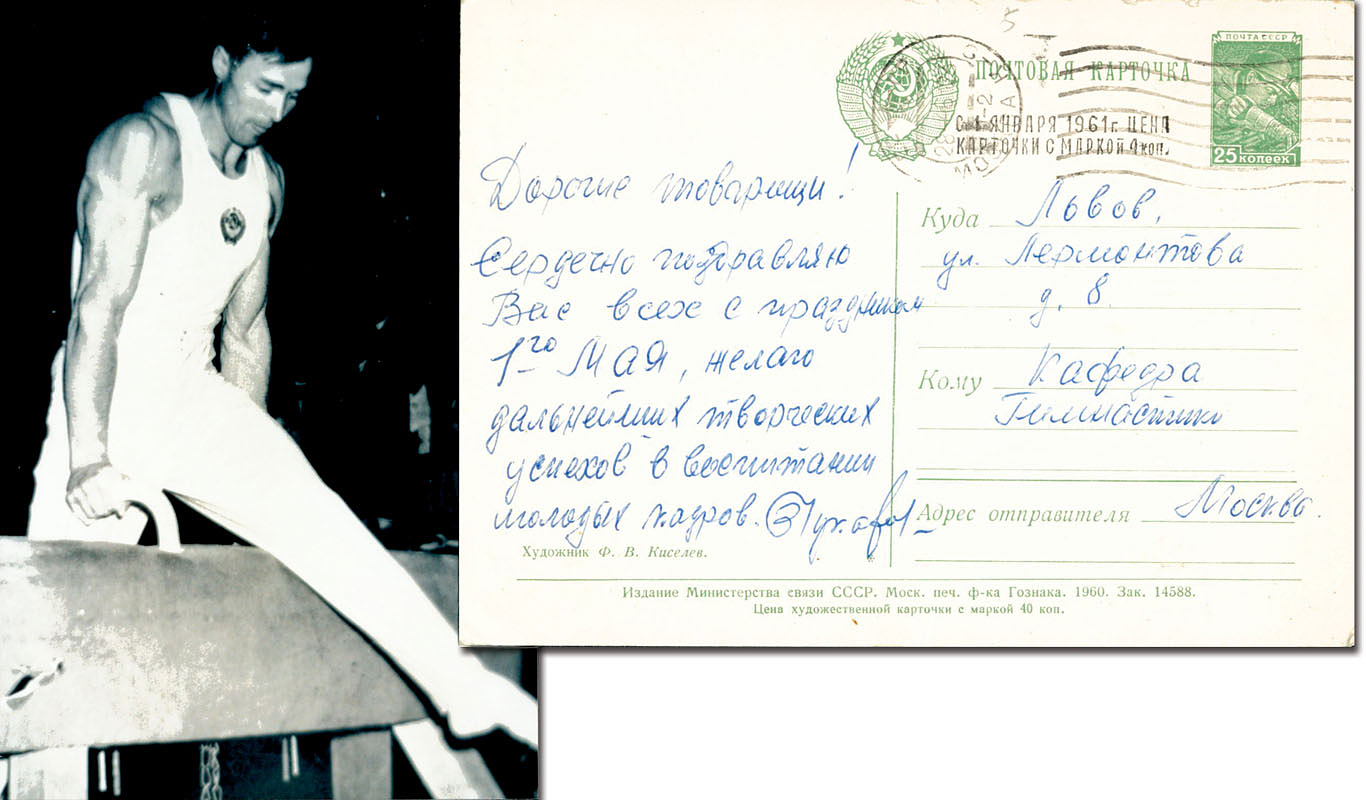 5
ПОЧТОВАЯ КАРТОЧКА
ПОЧТА СССР
25 КОПЕЕК
МОСКВА
С 1 ЯНВАРЯ 1961 г. ЦЕНА
КАРТОЧКИ С МАРКОЙ 4 коп.
Дорогие товарищи!
Сердечно поздравляю
Вас всех с праздником
1го Мая, желаю
дальнейших творческих
успехов в воспитании
молодых кадров.
Художник Ф. В. Киселев.
Куда Львов,
ул. Лермонтова
д. 8.
Кому Кафедра
Гимнастики
Адрес отправителя Москва.
Издание Министерства связи СССР. Моск. печ. ф-ка Гознака. 1960. Зак. 14588.
Цена художественной карточки с маркой 40 коп.